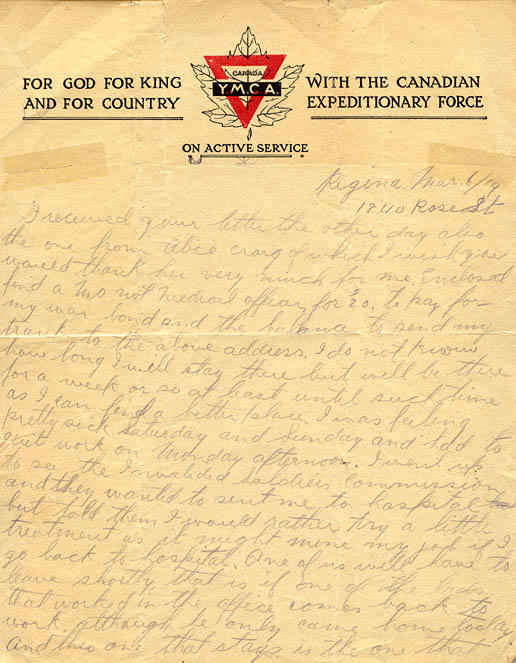 CANADA
Y.M.C.A.
FOR GOD FOR KING
AND FOR COUNTRY
WITH THE CANADIAN
EXPEDITIONARY FORCE
ON ACTIVE SERVICE
Regina. Mar. 6/19
1840 Rose St
I received your letter the other day also
the one from Alice Craig of which I wish you
would thank her very much for me. Enclosed
find a M.O. not Medical officer, for 20. to pay for
my war bond and the balance to send my
trunk to the above address. I do not know
how long I will stay there but will be there
for a week or so at least until such time
as I can find a better place. I was feeling
pretty sick Saturday and Sunday and had to
quit work on Monday afternoon. I went up
to see the Invalided Soldiers Commission
and they wanted to sent me to hospital
but told them I would rather try a little
treatment as it might mine my job if I
go back to hospital. One of us will have to
leave shortly that is if one of the lads
that worked in the office comes back to
work, although he only came home today
and this one that stays is the one that